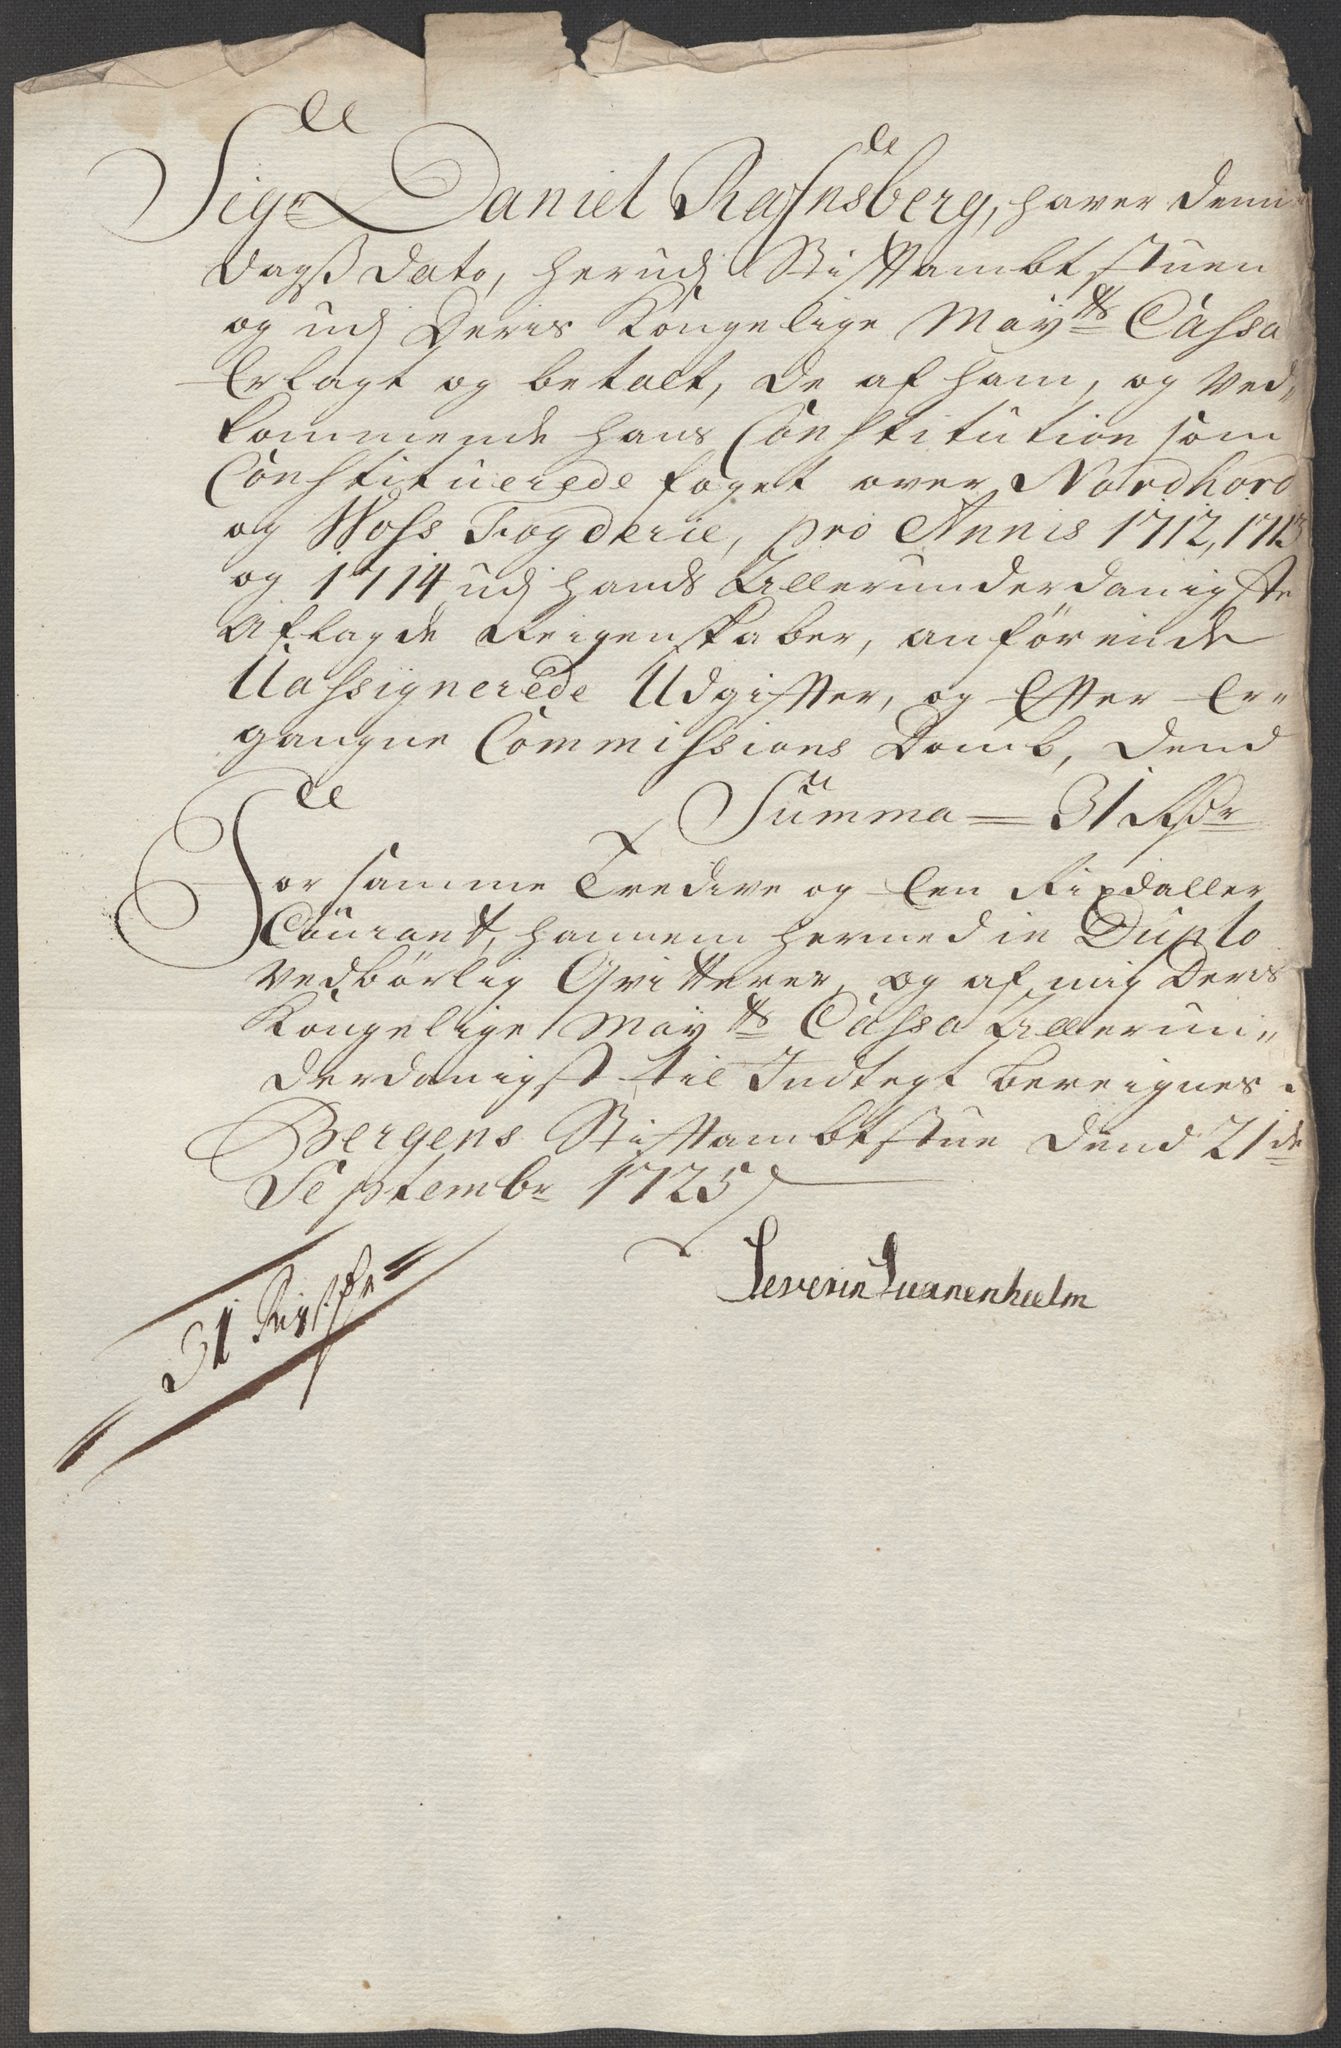 Sigr Daniel Rafnsberg, haver denne
dagß dato, herudj Stiftambtstuen
og udj Deris Kongelige Mayts Cassa
Erlagt og betalt, de af ham, og Ved„
kommende hans Constitution som
Constituerede foget over Nordhord
og Woss Fogderie, pro Annis 1712, 1713
og 1714 udj hands Allerunderdanigste
Aflagde Reigenskaber, anførende
Uassignerede Udgifter, og Efter Er„
gangne Commissions Domb, dend
Summa = 31 Rdr
For samme Tredive og Een Rixdaller
Courant, hannem hermed in Duplo
vedbørlig Qvitterer, og af mig Deris
Kongelige Mayts Cassa Allerun„
derdanigst til Indtegt bereignes.
Bergens Stiftambtstue dend 21de
Septembr 1725
Severin Suanenhielm
31